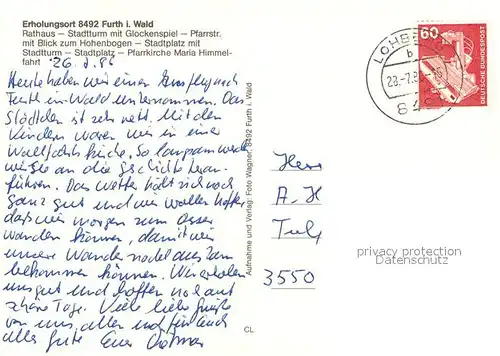 Erholungsort 8492 Furth i. Wald
Rathaus — Stadtturm mit Glockenspiel — Pfarrstr.
mit Blick zum Hohenbogen — Stadtplatz mit
Stadtturm — Stadtplatz — Pfarrkirche Maria Himmel-
fahrt 26.7.86
Heute haben wir einen Ausflug nach
Furth im Wald unternommen. Das
Städtchen ist sehr nett. Mit den
Kindern waren wir in einer
Wallfahrtskirche, so langsam werden
wir sie an die Geschichte heran-
führen. Das Wetter hält sich noch
ganz gut und wir wollen hoffen
daß wir morgen zum Osser
wandern können, damit wir
unsere Wandernadel auszam
bekommen können. Wir erholen
uns gut und hoffen noch auf
schöne Tage. Viele liebe Grüße
von uns allen und für euch
alles gute Eure
Herr
A. H
3550
60
DEUTSCHE BUNDESPOST
LOHBE
b
28.-7.8
Aufnahme und Verlag: Foto Wagner, 8492 Furth i. Wald
CL
privacy protection
Datenschutz